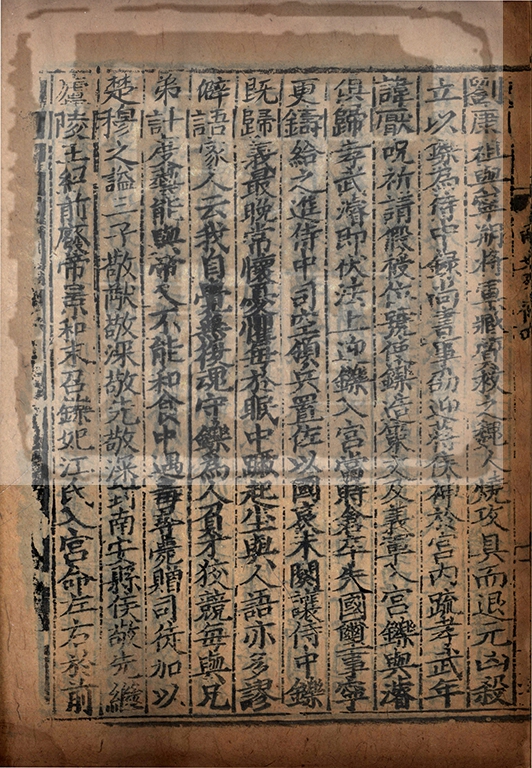 劉康祖與寧朔將軍臧質救之魏人燒攻具而退元凶殺
立以鑠為侍中錄尚書事劭迎蔣侯神於宮內疏孝武年
諱厭呪祈請假授位號使鑠造策文及義軍入宮鑠與濬
俱歸孝武濬即伏法上迎鑠入宮當時倉卒失國璽事寧
更鑄給之進侍中司空領兵置佐以國哀未闋讓侍中鑠
既歸義最晚常懷憂懼每於眠中蹶起坐與人語亦多謬
僻語家人云我自覺無復魂守鑠為人負才狡競每與兄
弟計度藝能與帝又不能和食中遇毒尋薨贈司徒加以
楚穆之謚三子敬猷敬深敬先敬深封南安縣侯敬先繼
廬陵王紹前廢帝景和末召鑠妃江氏入宮命左右於前